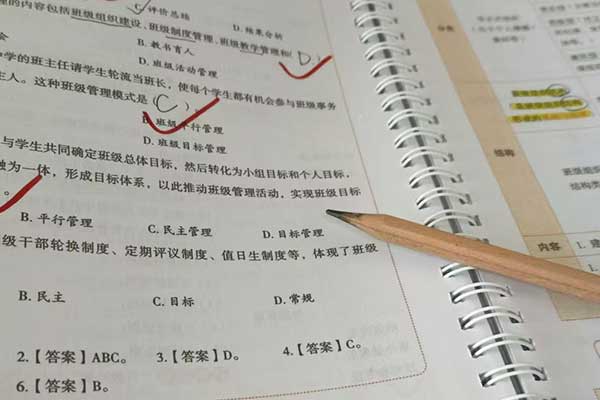 C 评价总结
理的内容包括班级组织建设、班级制度管理、班级教学管理和( D )
D. 结果分析
会
B. 教书育人
D. 班级活动管理
学的班主任请学生轮流当班长，使每个学生都有机会参与班级事务
主人。这种班级管理模式是( C )。
B. 班级平行管理
D. 班级目标管理
与学生共同确定班级总体目标，然后转化为小组目标和个人目标，
融为一体，形成目标体系，以此推动班级管理活动，实现班级目标
。
B. 平行管理 C. 民主管理 D. 目标管理
级干部轮换制度、定期评议制度、值日生制度等，体现了班级
B. 民主 C. 目标 D. 常规
2.【答案】ABC。 3.【答案】D。 4.【答案】C。
6.【答案】B。
结构
内容
1. 建
班级组织
结构类